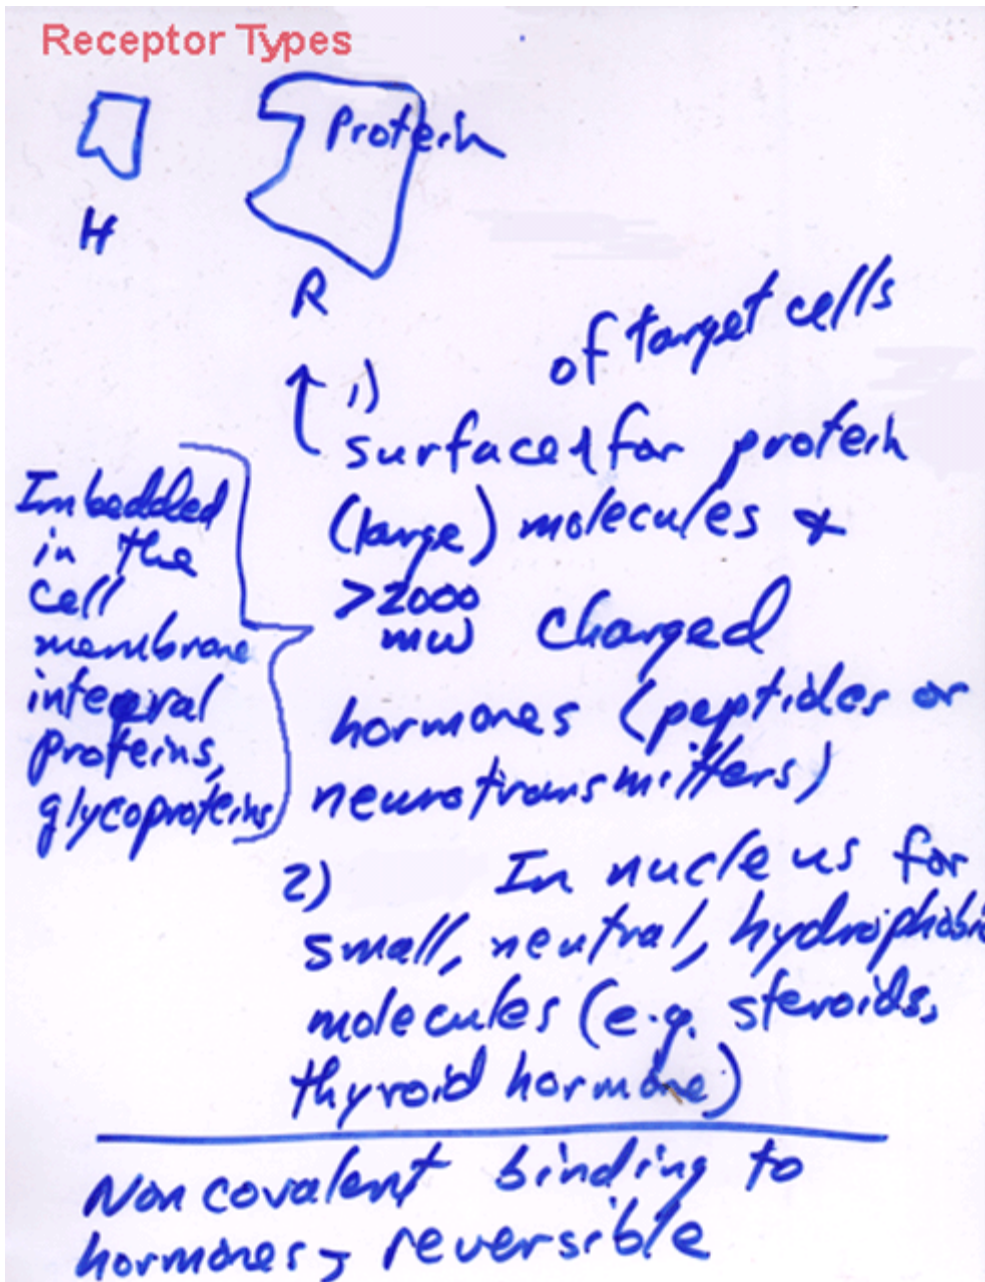 Receptor Types
Protein
H
R
of target cells
1)
surface for protein
(large) molecules &
>2000
mw
charged
hormones (peptides or
neurotransmitters)
Imbedded
in the
cell
membrane
integral
proteins,
glycoproteins
2) In nucleus for
small, neutral, hydrophobic
molecules (e.g. steroids,
thyroid hormone)
Noncovalent binding to
hormones, reversible